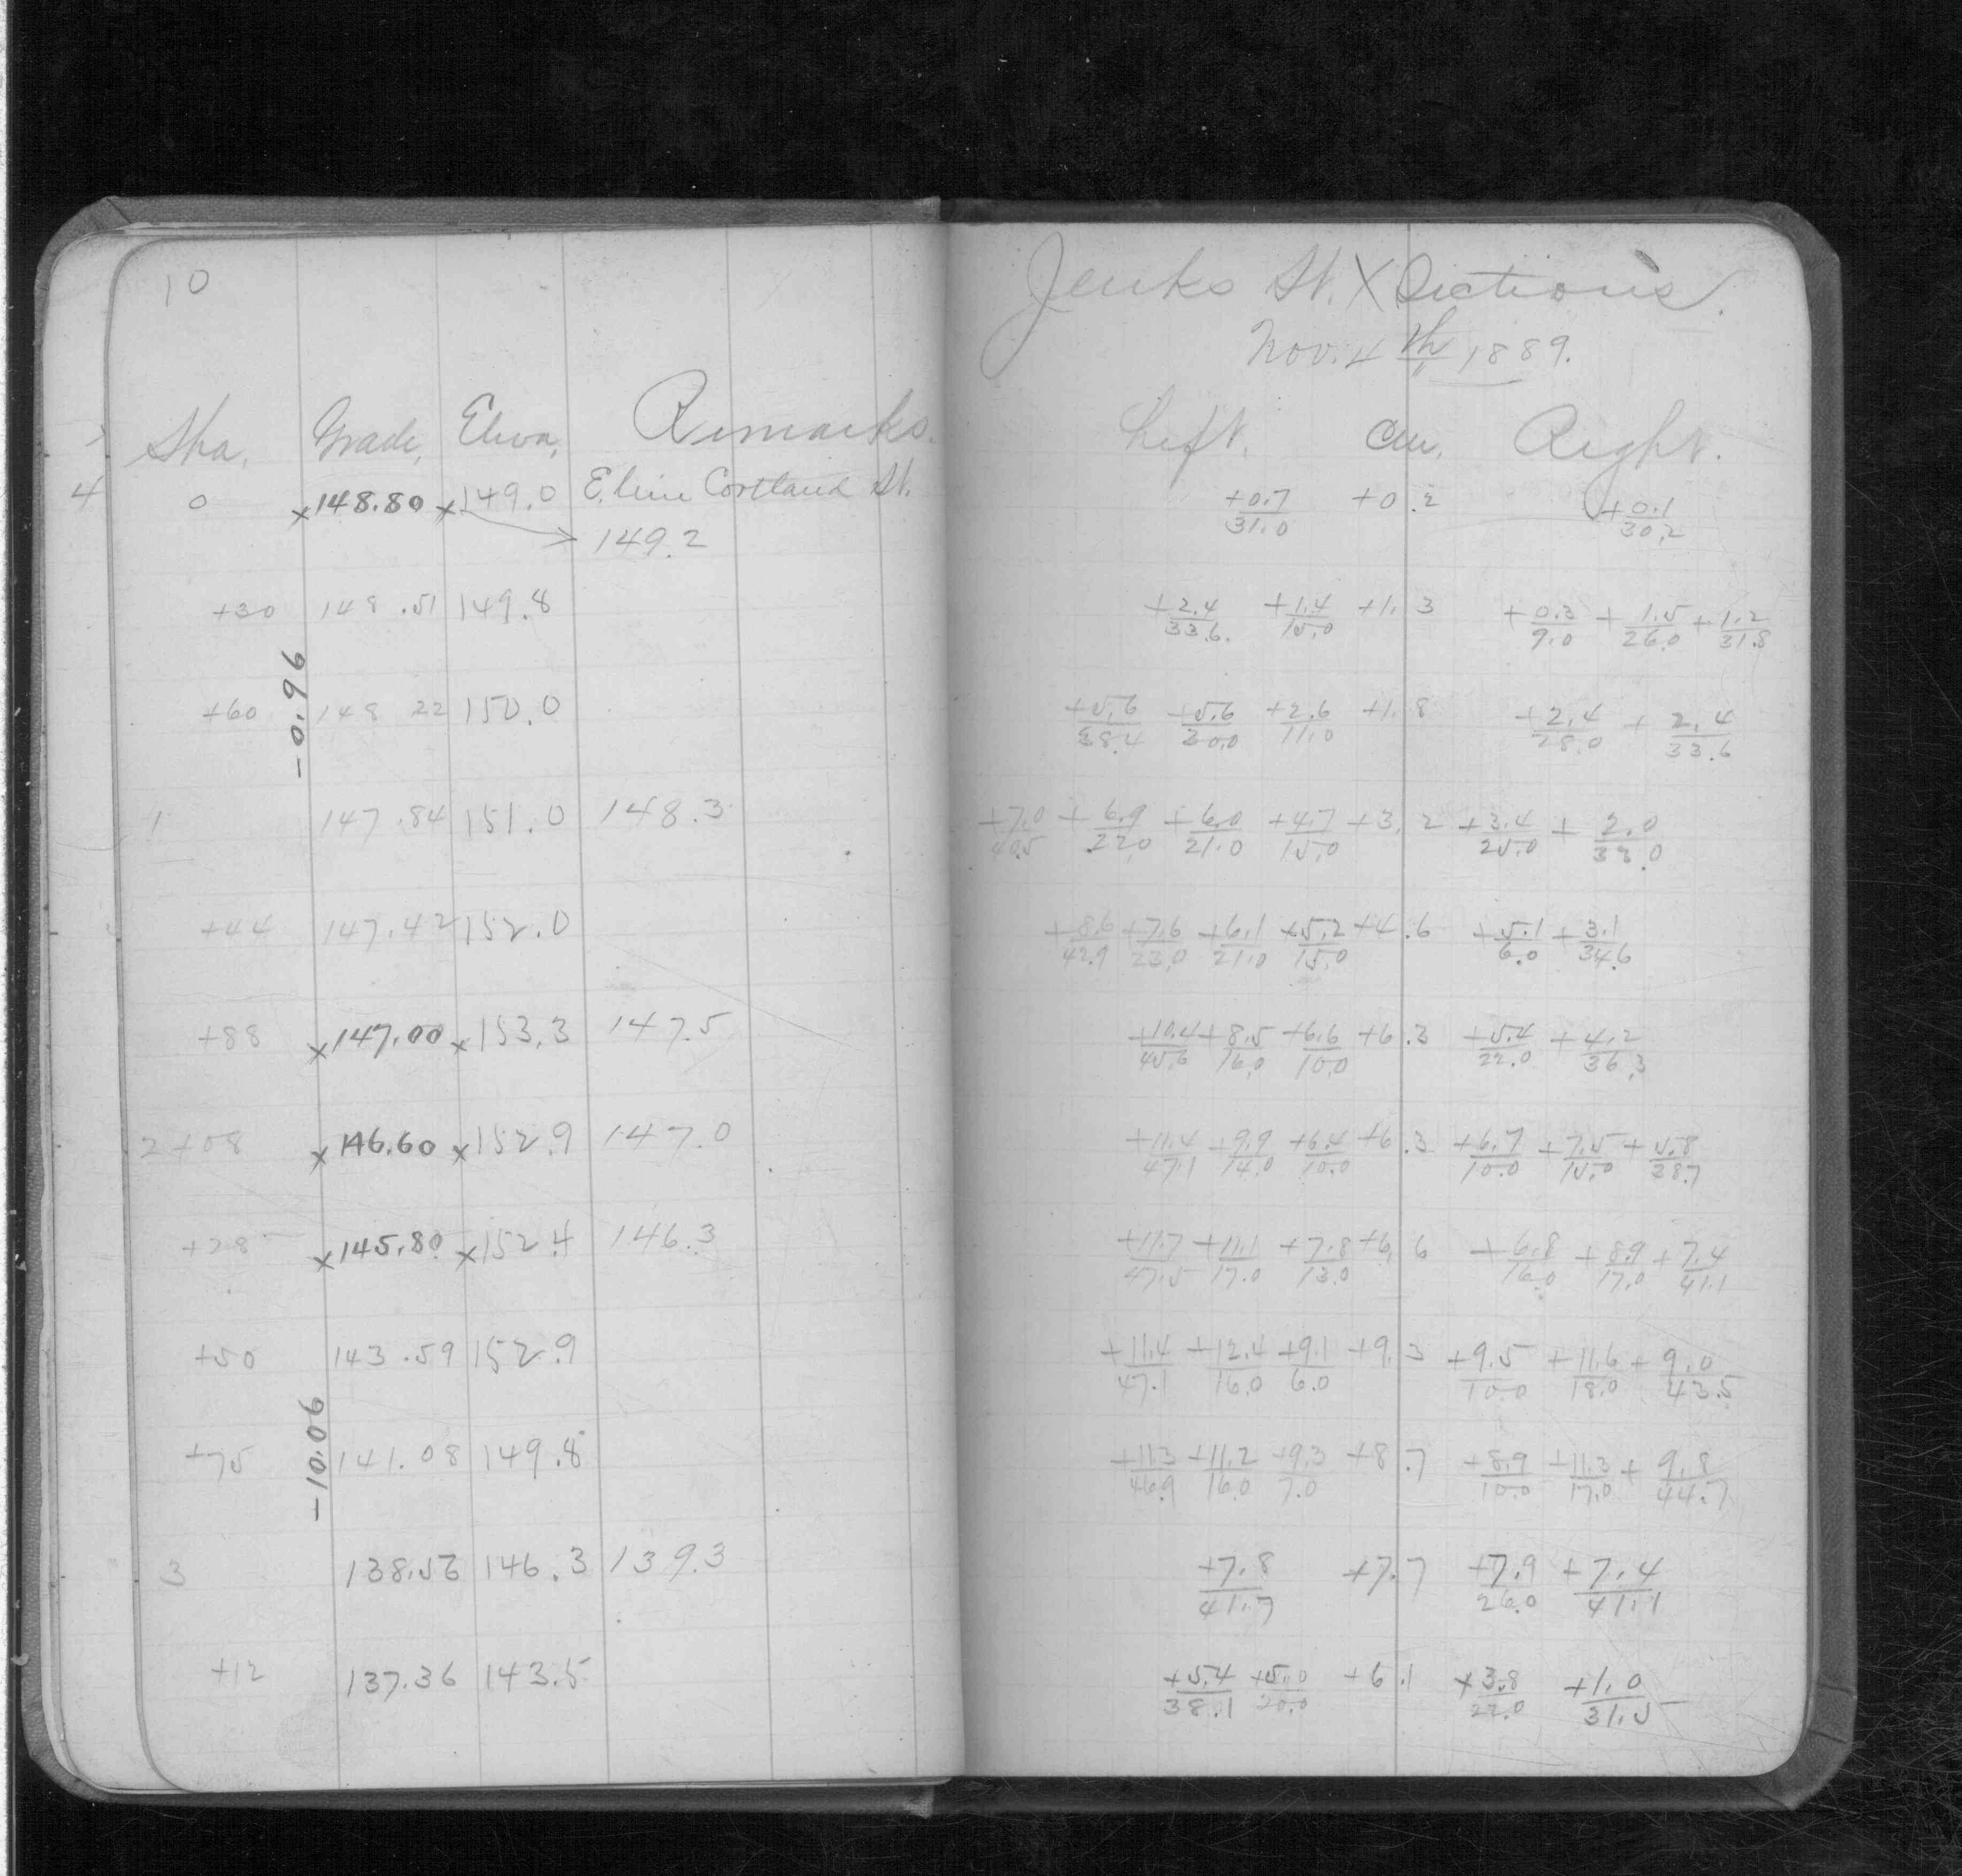 10
Sta. Grade, Eleva, Remarks.
4
0 x148.80 x149.0 E. line Cortland St.
149.2
+30 148.51 149.8
-0.96
+60 148 22 150.0
1 147.84 151.0 148.3
+44 147.42 152.0
+88 x147.00 x153.3 147.5
2+08 x146.60 x152.9 147.0
+28 x145.80 x152.4 146.3
+50 143.59 152.9
-10.06
+75 141.08 149.8
3 138.56 146.3 139.3
+12 137.36 143.5
Jenks St. X Sections.
Nov. 4th, 1889.
Left. Cen. Right.
+0.7/31.0 +0.2 +0.1/30.2
+2.4/33.6 +1.4/15.0 +1.3 +0.3/9.0 +1.5/26.0 +1.2/31.8
+5.6/38.4 +5.6/20.0 +2.6/11.0 +1.8 +2.4/28.0 +2.4/33.6
+7.0/40.5 +6.9/22.0 +6.0/21.0 +4.7/15.0 +3.2 +3.4/25.0 +2.0/33.0
+8.6/42.9 +7.6/23.0 +6.1/21.0 +5.2/15.0 +4.6 +5.1/6.0 +3.1/34.6
+10.4/45.6 +8.5/16.0 +6.6/10.0 +6.3 +5.4/22.0 +4.2/36.3
+11.4/47.1 +9.9/14.0 +6.4/10.0 +6.3 +6.7/10.0 +7.5/15.0 +5.8/38.7
+11.7/47.5 +11.1/17.0 +7.8/13.0 +6.6 +6.8/16.0 +8.9/17.0 +7.4/41.1
+11.4/47.1 +12.4/16.0 +9.1/6.0 +9.3 +9.5/10.0 +11.6/18.0 +9.0/43.5
+11.3/46.9 +11.2/16.0 +9.3/7.0 +8.7 +8.9/10.0 +11.3/17.0 +9.8/44.7
+7.8/41.7 +7.7 +7.9/26.0 +7.4/41.1
+5.4/38.1 +5.0/20.0 +6.1 +3.8/22.0 +1.0/31.5